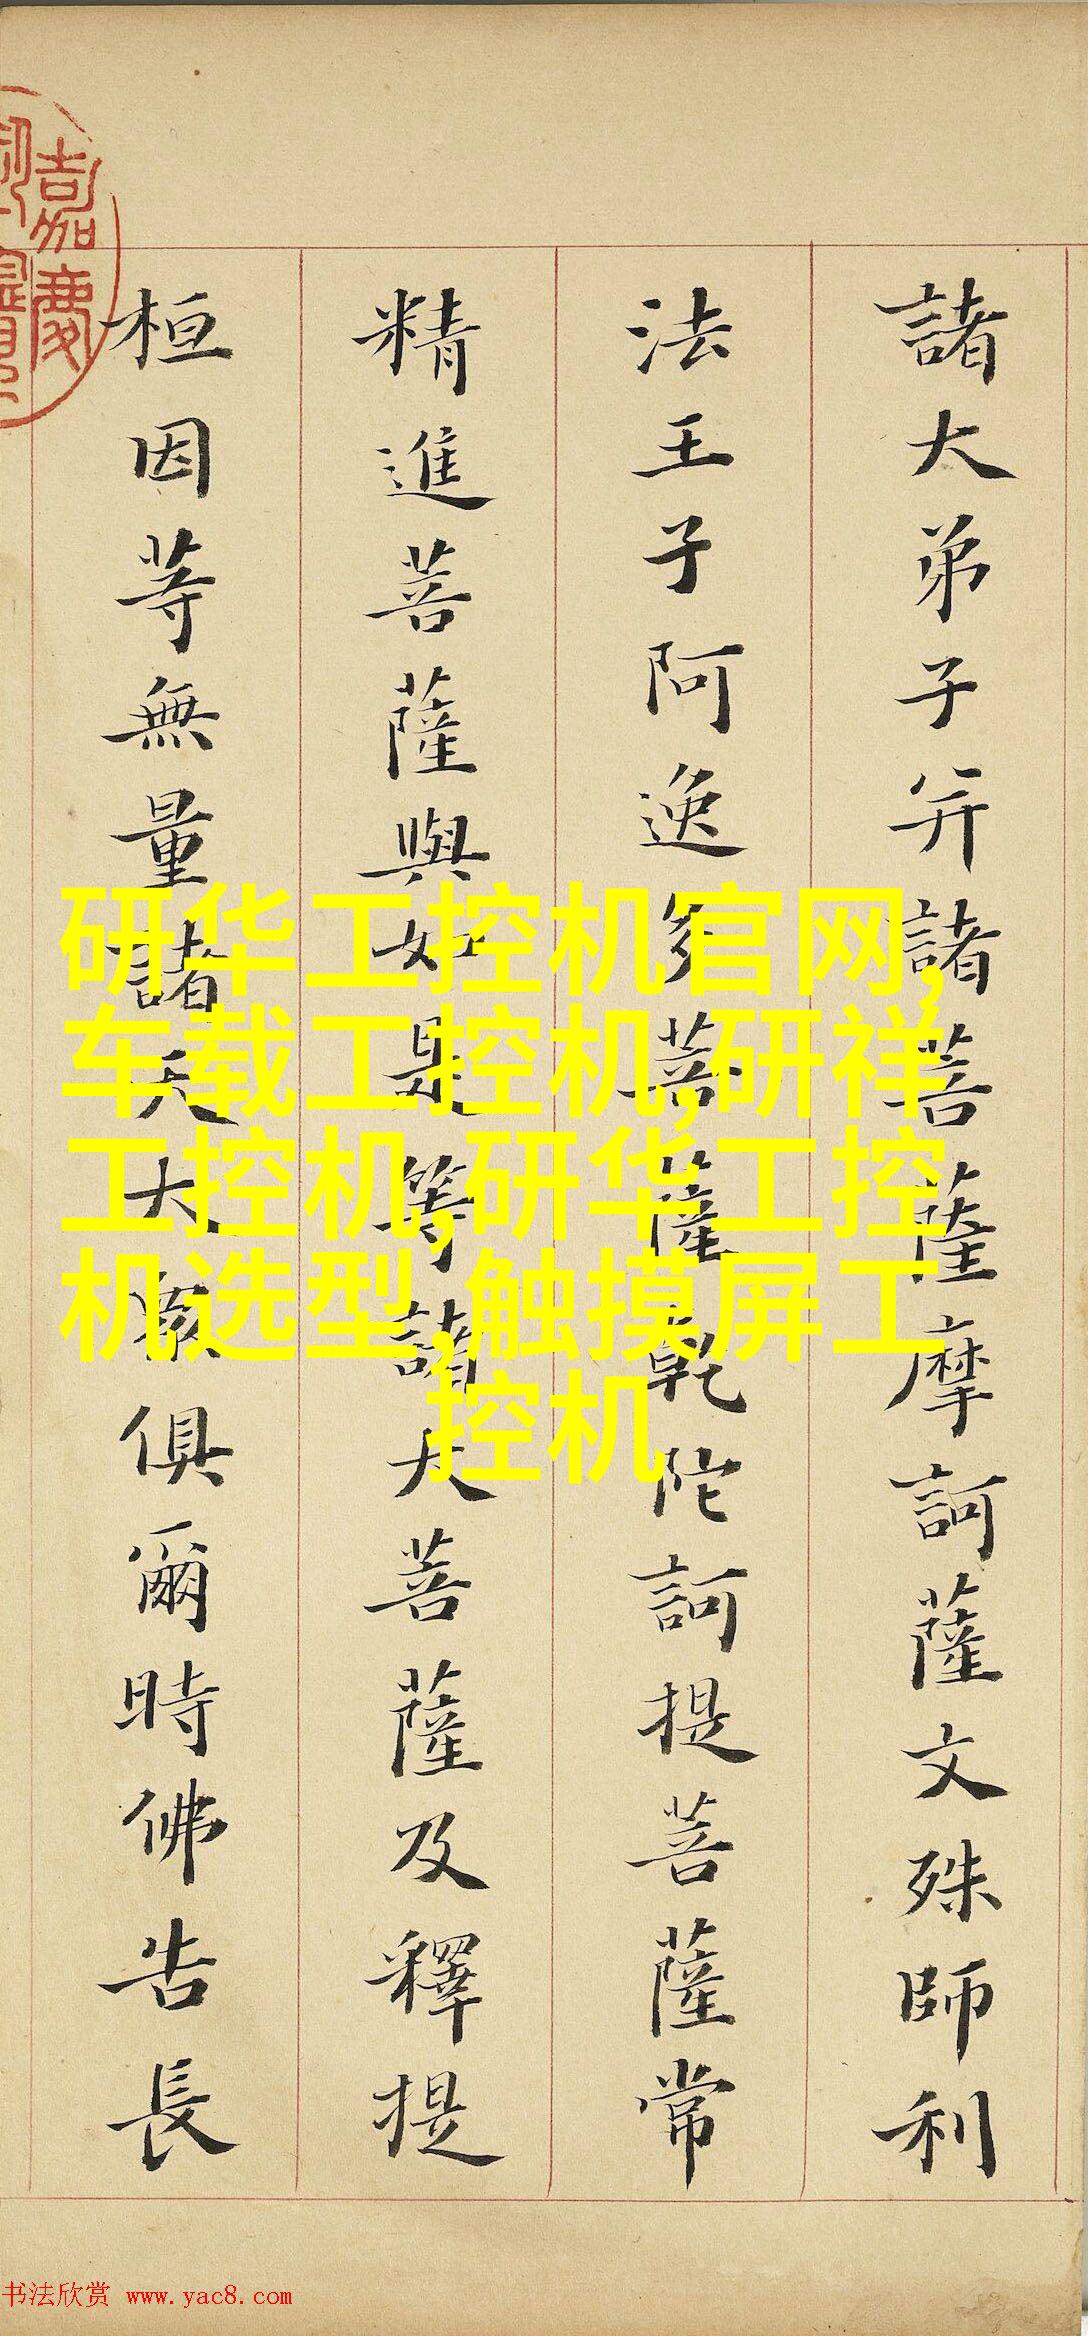 諸大弟子并諸菩薩摩訶薩文殊師利
法王子阿逸多菩薩乾陀訶提菩薩常
精進菩薩與如是等諸大菩薩及釋提
桓因等無量諸天大衆俱爾時佛告長
嘉慶
研华工控机官网,
车载工控机,研祥
工控机,研华工控
机选型,触摸屏工
控机
书法欣赏 www.yac8.com